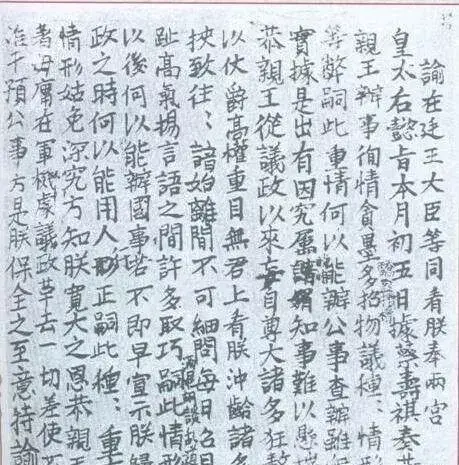 諭在廷王大臣等同看朕奉兩宮
皇太右懿旨本月初五日據蔡壽祺奏恭
親王辦事徇情貪墨多招物議種〻情形
等弊嗣此重情何以能辦公事查辦雖
實據是出有因究屬知事難以懸
恭親王從議政以來妄自尊大諸多狂敖
以仗爵高權重目無君上看朕沖齡諸多
挾致往〻諳始離間不可細問每日召見
趾高氣揚言語之間許多取巧滿口胡談亂道嗣此情形
以後何以能辦國事若不即早宣示朕歸
政之時何以能用人形正嗣此種〻重
情形姑免深究方知朕寬大之恩恭親王
著毋庸在軍機處議政革去一切差使不
准干預公事方是朕保全之至意特諭